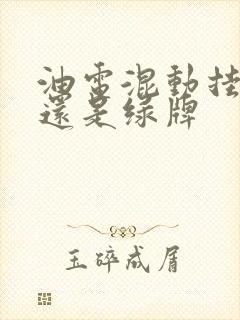 油電混動挂
還是綠牌
玉碎成屑